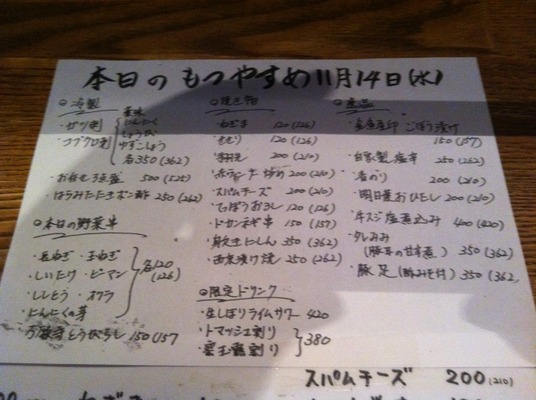 本日のもつやすめ11月14日(水)
◎冷製
・ガツ刺
・コブクロ刺
にんにく
しょうが
ゆずこしょう
各350(362)
・お刺身3点盛 500(525)
・はらみたたきポン酢 250(262)
◎本日の野菜串
・長ねぎ ・玉ねぎ
・しいたけ ・ピーマン
・ししとう ・オクラ
・にんにくの芽
各120
(126)
・万願寺とうがらし 150(157
◎焼き物
・ねぎま 120(126)
120(126)
200(210)
200(210)
・スパムチーズ 200(210)
・てっぽうおろし 120(126)
・ドサンネギ串 150(157)
・身欠きにしん 350(362)
・西京漬け焼 250(262)
◎限定ドリンク
・生しぼりライムサワー 420
・トマッシュ割り
割り
380
ごぼう漬け
150(157)
・自家製塩辛 250(262)
・岩のり 200(210)
・明日葉おひたし 200(210)
・牛スジ塩煮込み 400(420)
(豚耳の甘煮) 350(362)
・豚足(酢みそ付) 350(362
スパムチーズ 200(210)